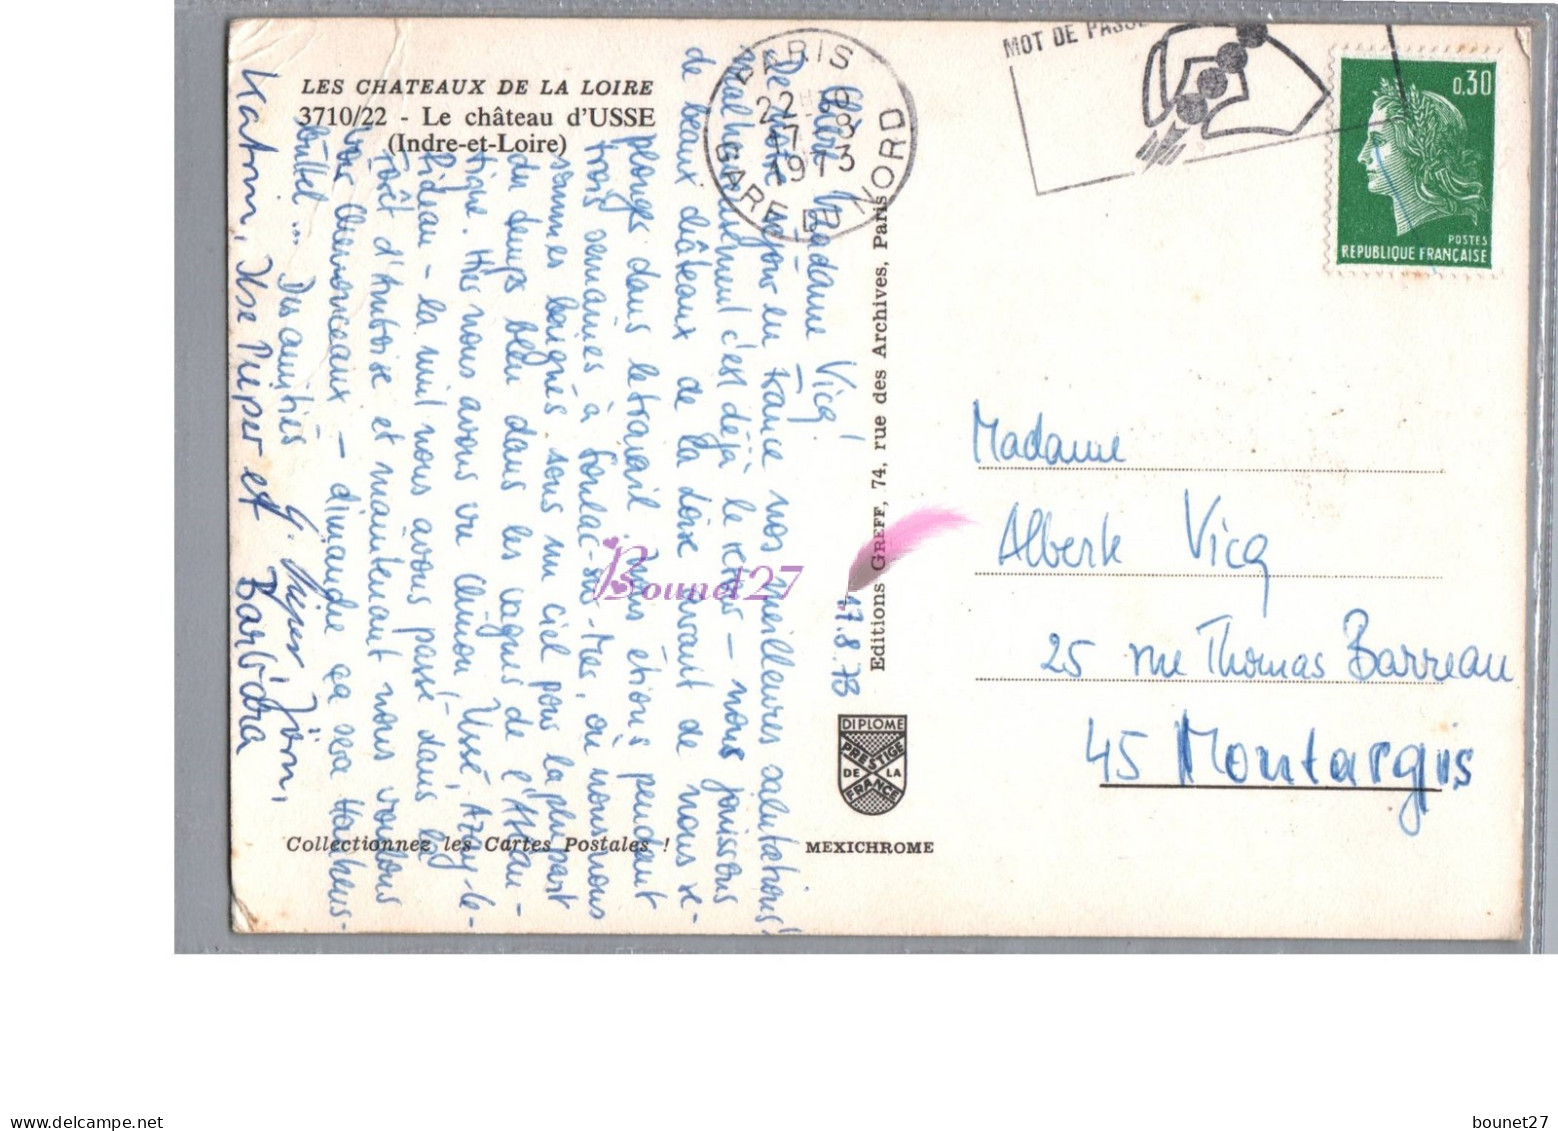 LES CHATEAUX DE LA LOIRE
3710/22 - Le château d'USSE
(Indre-et-Loire)
17.8.73
Chère Madame Vicq!
De notre séjour en France nos meilleures salutations!
Malheureusement c'est déjà le retour – nous jouissons
de beaux châteaux de la Loire avant de nous re-
plonger dans le travail. Nous étions pendant
trois semaines à Soulac-sur-Mer, où nous nous
sommes baignés sous un ciel pour la plupart
du temps bleu dans les vagues de l'Atlan-
tique. Hier nous avons vu Chinon, Ussé, Azay-le-
Rideau – la nuit nous avons passé dans la
Forêt d'Amboise et maintenant nous voulons
voir Chenonceaux – dimanche ça sera
Des amitiés
Jörn,
Katrin, Ilse Pieper et Barbara
PARIS
22 H
17-8
1973
GARE DU NORD
MOT DE PASSE
0,30
POSTES
REPUBLIQUE FRANÇAISE
Editions GREFF, 74, rue des Archives, Paris
Madame
Alberte Vicq
25 rue Thomas Barreau
45 Montargis
DIPLOME
PRESTIGE
DE LA
FRANCE
Collectionnez les Cartes Postales !
MEXICHROME
Bounet27
bounet27